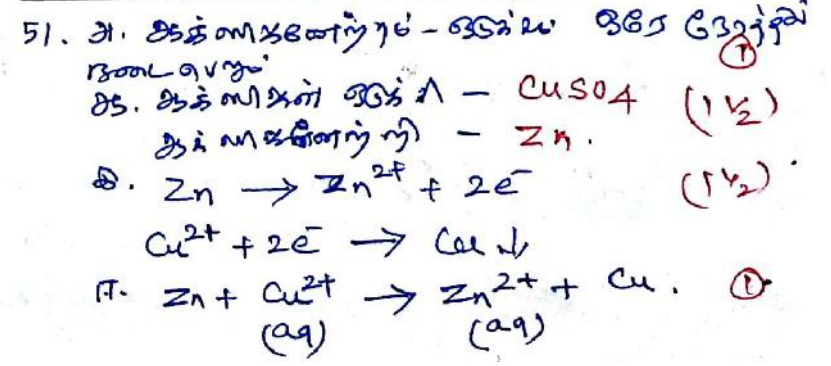 51. அ. ஆக்ஸிகனேற்றம் - ஒடுக்கம் ஒரே நேரத்தில் ①
நடைபெறும்
ஆ. ஆக்ஸிகன் ஒடுக்கி - CuSO4 (1 ½)
ஆக்ஸிகனேற்றி - Zn.
இ. Zn → Zn²⁺ + 2e⁻ (1 ½)
Cu²⁺ + 2e⁻ → Cu ↓
ஈ. Zn + Cu²⁺ → Zn²⁺ + Cu. ①
(aq) (aq)